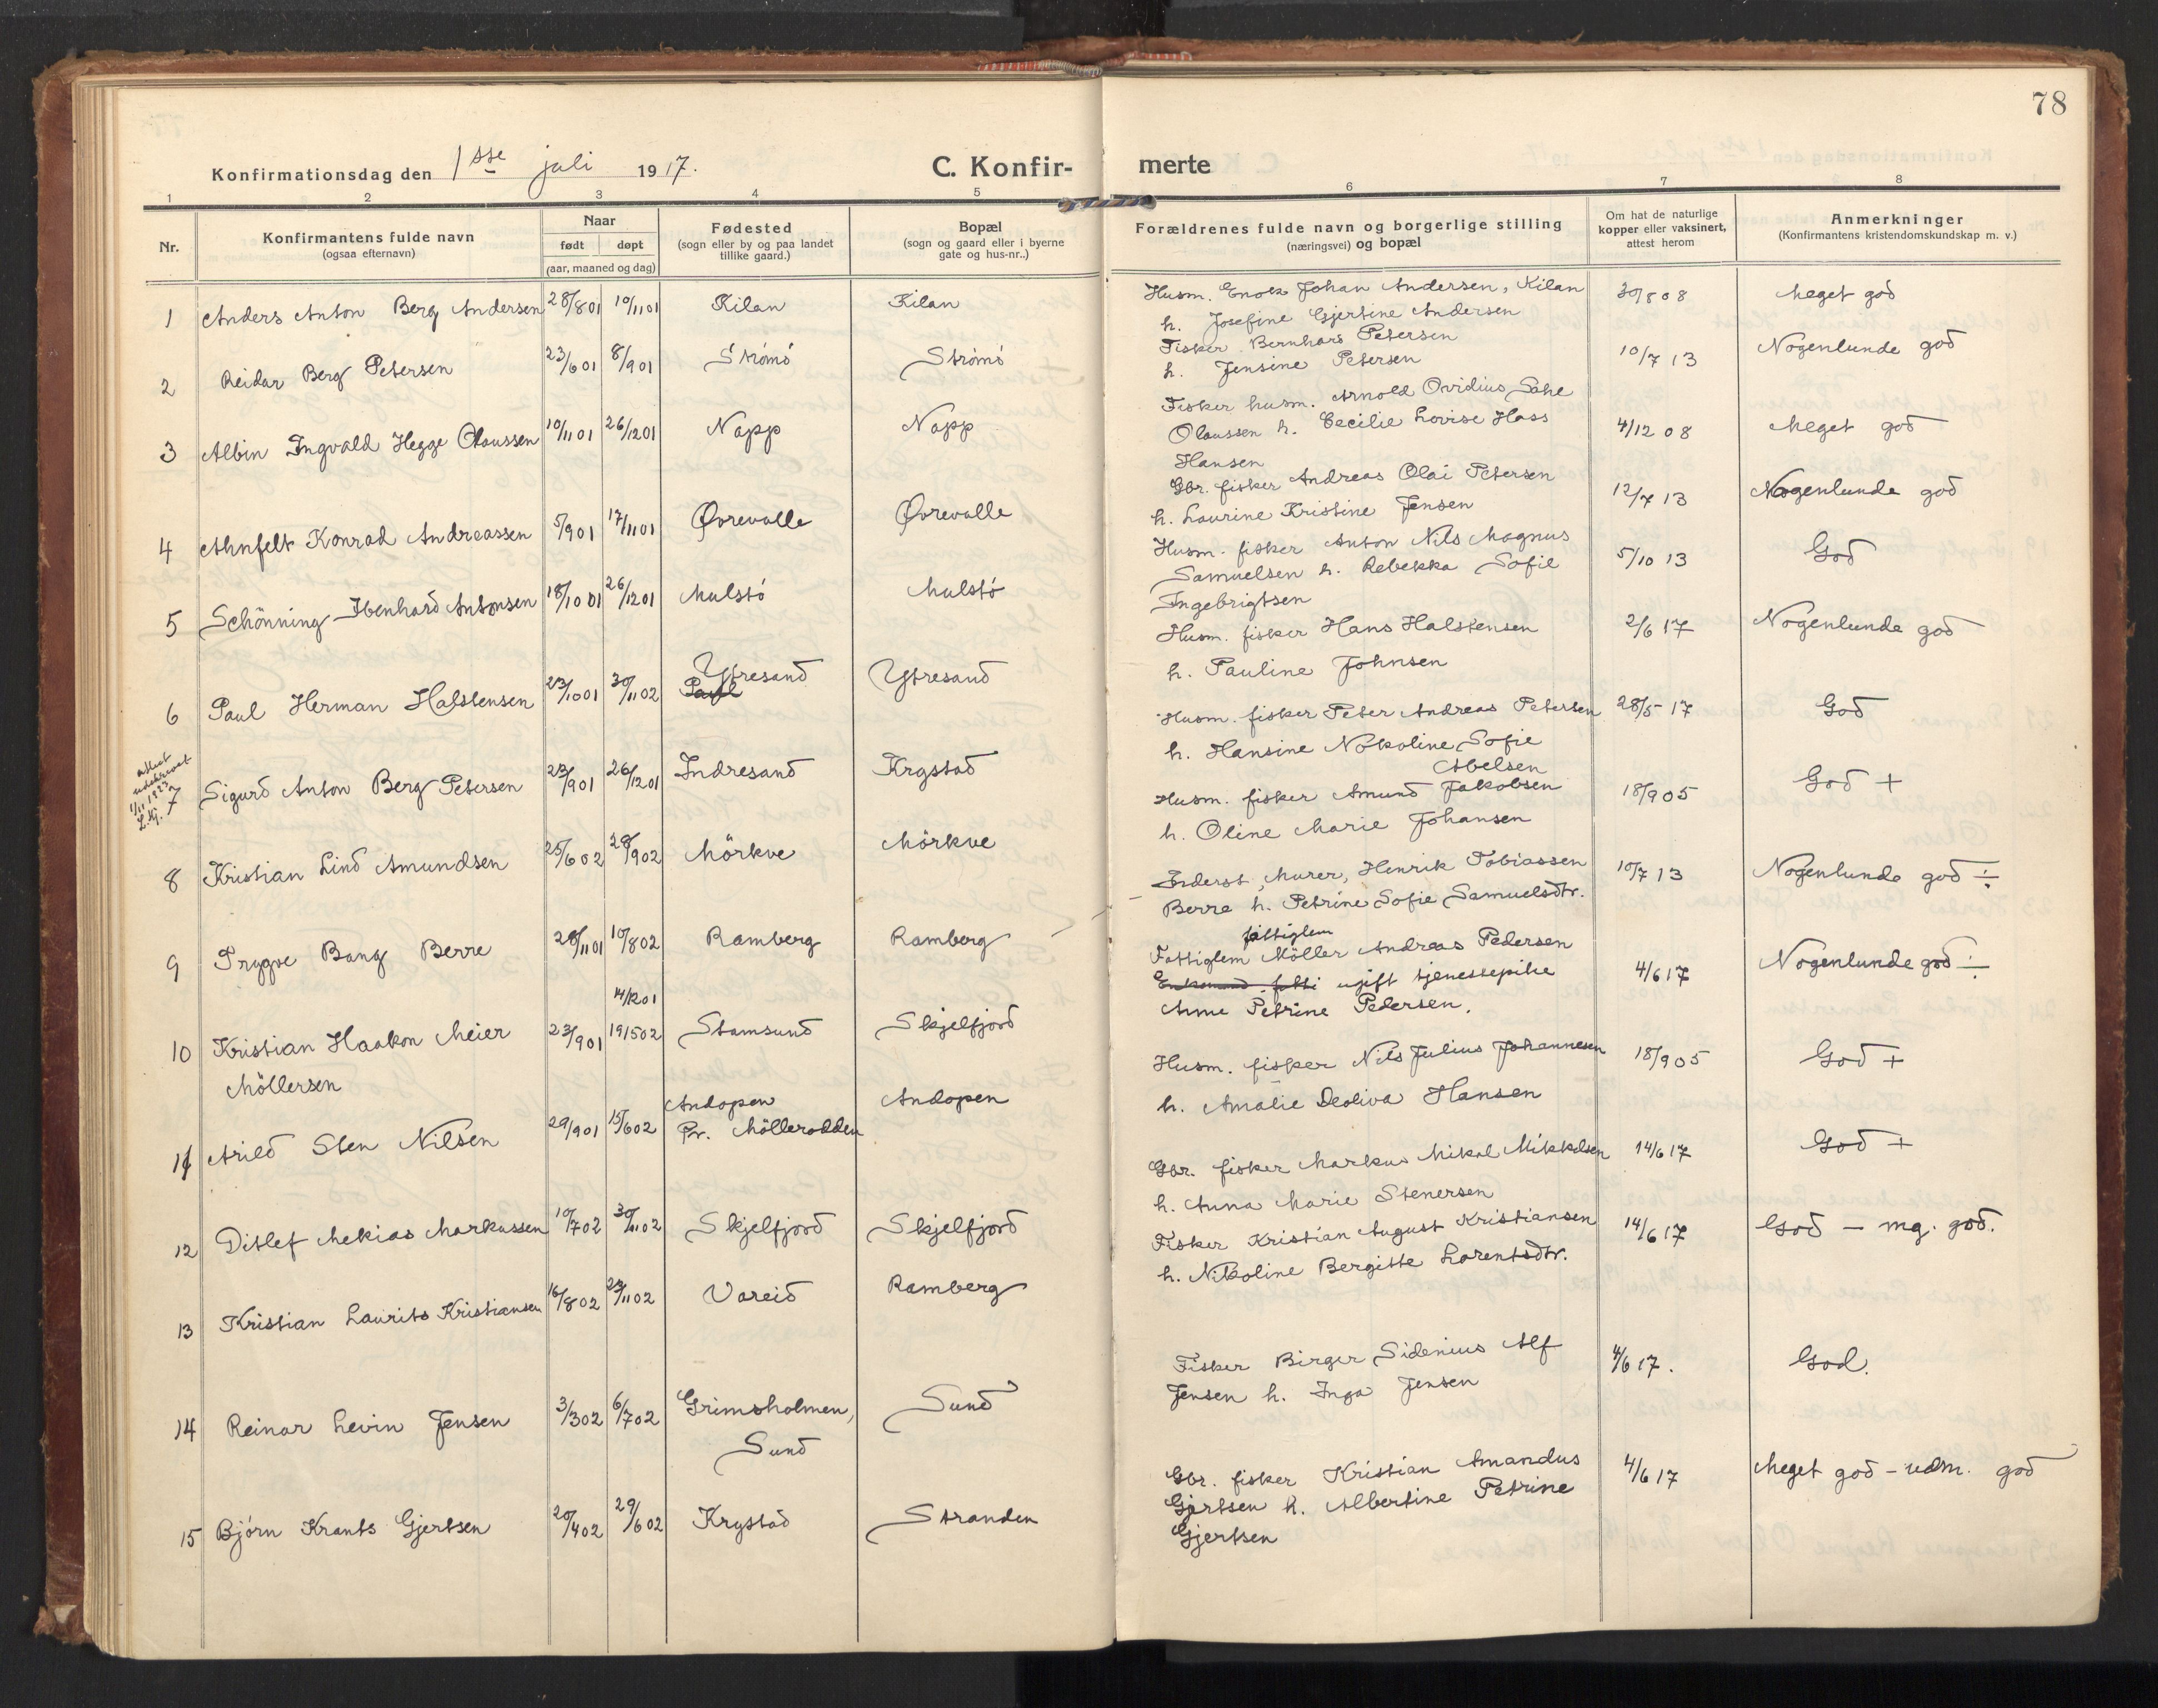 78
Konfirmationsdag den 1sse juli 1917.
C. Konfir-
merte
1 2 3 4 5 6 7 8
Nr.
Konfirmantens fulde navn
(ogsaa efternavn)
Naar
født døpt
(aar, maaned og dag)
Fødested
(sogn eller by og paa landet
tillike gaard.)
Bopæl
(sogn og gaard eller i byerne
gate og hus-nr..)
Forældrenes fulde navn og borgerlige stilling
(næringsvei) og bopæl
Om hat de naturlige
kopper eller vaksinert,
attest herom
Anmerkninger
(Konfirmantens kristendomskundskap m. v.)
1 Anders Anton Berg Andersen 28/8 01 10/11 01 Kilan Kilan
Husm. Enok Johan Andersen, Kilan 30/8 08 Meget god
h. Josefine Gjertine Andersen
2 Reidar Berg Petersen 23/6 01 8/9 01 Strömö Strömö
Fisker Bernhard Petersen 10/7 13 Nogenlunde god
h. Jensine Petersen
3 Albin Ingvald Hegge Olaussen 10/11 01 26/12 01 Napp Napp
Fisker husm. Arnold Ovidius Sahl
Olaussen h. Cecilie Lovise Hass 4/12 08 Meget god
Hansen
4 Ahnfelt Konrad Andreassen 5/9 01 17/11 01 Övrevalle Övrevalle
Gbr. fisker Andreas Olai Petersen 12/7 13 Nogenlunde god
h. Laurine Kristine Jensen
5 Schönning Ibenhard Antonsen 18/10 01 26/12 01 Mulstö Mulstö
Husm. fisker Anton Nils Magnus
Samuelsen h. Rebekka Sofie 5/10 13 God
Ingebrigtsen
6 Paul Herman Halstensen 23/10 01 30/11 02 Ytresand Ytresand
Husm. fisker Hans Halstensen 2/6 17 Nogenlunde god
h. Pauline Johnsen
attest
utskrevet
1/11 1923
L.Kj.
7 Sigurd Anton Berg Petersen 23/9 01 26/12 01 Indresand Krystad
Husm. fisker Peter Andreas Petersen 28/5 17 God
h. Hansine Nokoline Sofie
Abelsen
8 Kristian Lind Amundsen 25/6 02 28/9 02 Mörkve Mörkve
Husm. fisker Amund Jakobsen 18/9 05 God +
h. Oline Marie Johansen
9 Trygve Bang Berre 28/11 01 10/8 02 Ramberg Ramberg
Inderst, Murer, Henrik Tobiassen 10/7 13 Nogenlunde god ÷
Berre h. Petrine Sofie Samuelsdtr.
10 Kristian Haakon Meier 23/9 01 14/12 01 19/5 02 Stamsund Skjelfjord
Möllersen
fattiglem
Fattiglem Möller Andreas Pedersen
ugift tjenestepike 4/6 17 Nogenlunde god ÷
Anne Petrine Pedersen.
11 Arild Sten Nilsen 29/9 01 15/6 02 Andopen Andopen
Pr. Mölleradden
Husm. fisker Nils Julius Johannesen 18/9 05 God +
h. Amalie Deoliva Hansen
12 Ditlef Mekias Markussen 10/7 02 30/11 02 Skjelfjord Skjelfjord
Gbr. fisker Markus Mikal Mikkelsen 14/6 17 God +
h. Anna Marie Stenersen
13 Kristian Laurits Kristiansen 16/8 02 23/11 02 Vareid Ramberg
Fisker Kristian August Kristiansen 14/6 17 God - mg. god.
h. Nikoline Bergitte Larentsdtr.
14 Reinar Levin Jensen 3/3 02 6/7 02 Grimsholmen, Sund
Sund
Fisker Birger Sidenius Alf 4/6 17. God.
Jensen h. Inga Jensen
15 Björn Krants Gjertsen 20/4 02 29/6 02 Krystad Stranden
Gbr. fisker Kristian Amandus 4/6 17 Meget god - udm. god
Gjertsen h. Albertine Petrine
Gjertsen